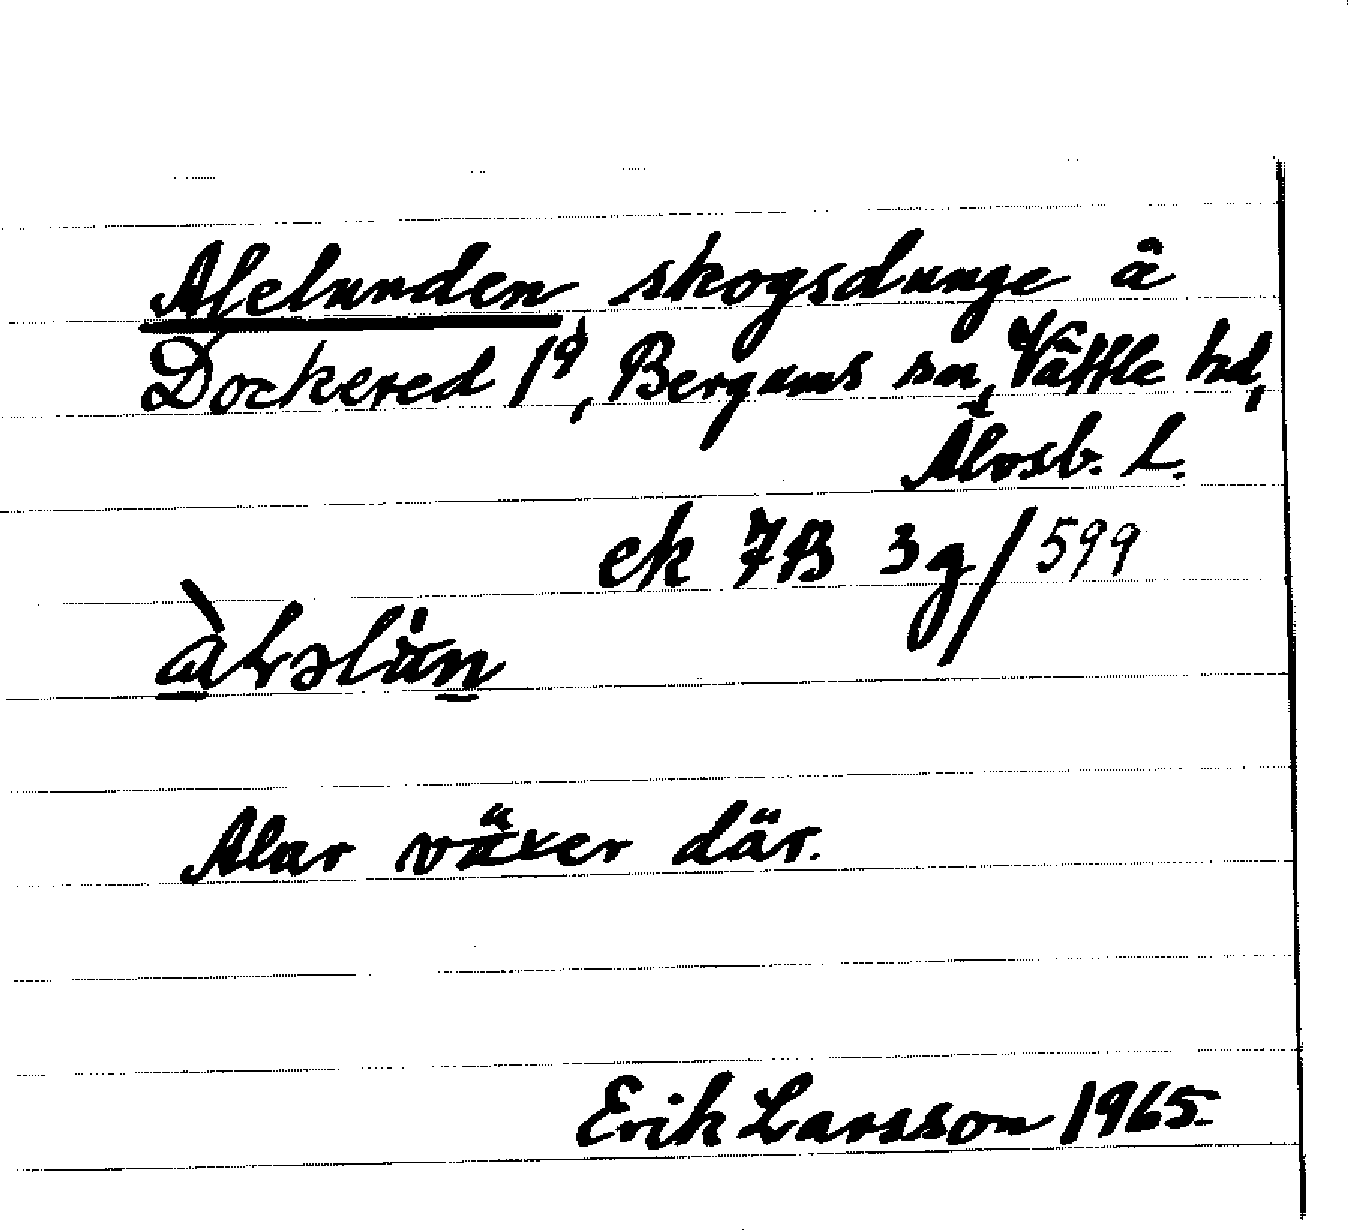 Alelunden skogsdunge å
Dockered 1⁹, Bergums sn, Vättle hd,
Älvsb. L.
ek 7B 3g/599
Alar växer där.
Erik Larsson 1965.